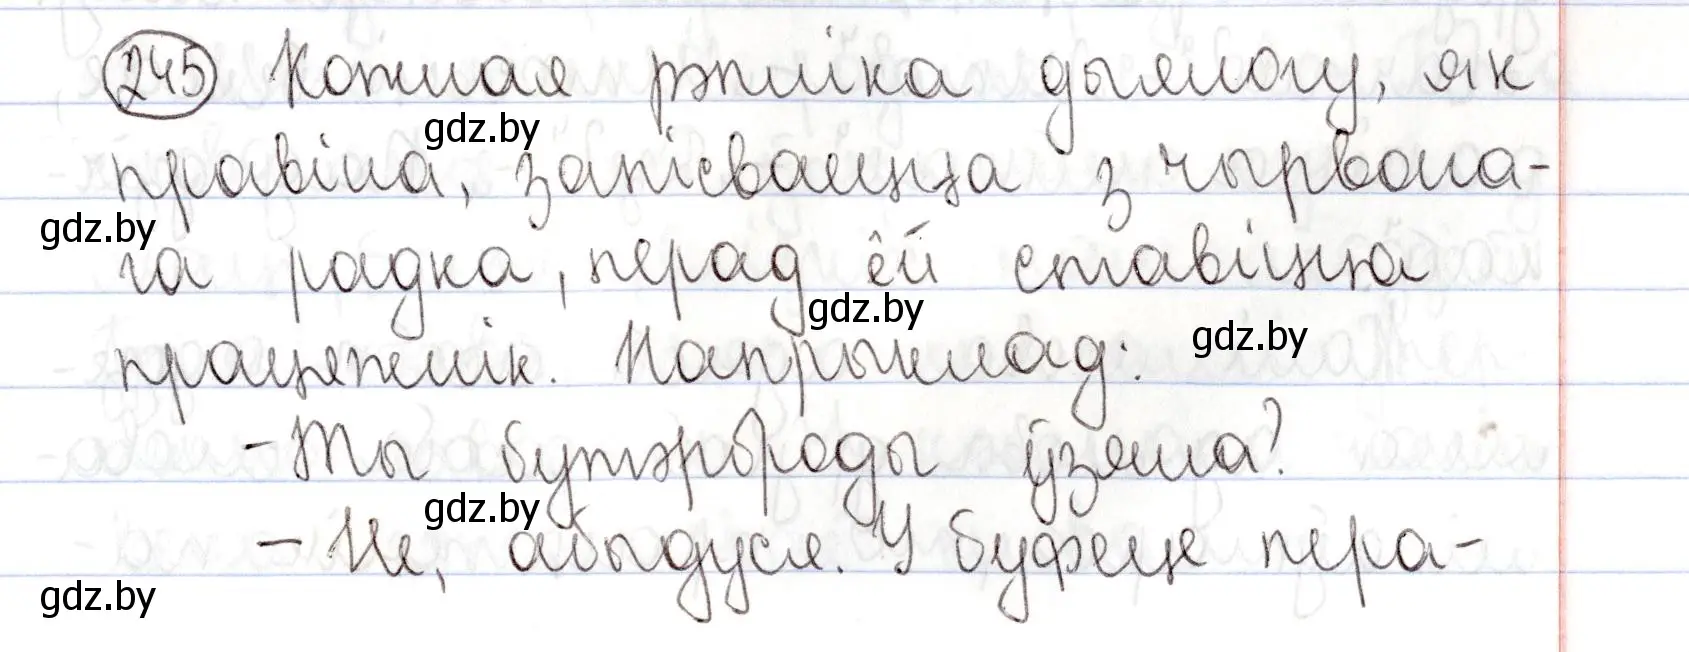 245 Кожная рэпліка дыялогу, як
gdz.by
правіла, запісваецца з чырвона-
gdz.by
га радка, перад ёй ставіцца
gdz.by
працяжнік. Напрыклад:
gdz.by
- Ты бутэрброды ўзяла?
gdz.by
- Не, абыдуся. У буфеце пера-
gdz.by